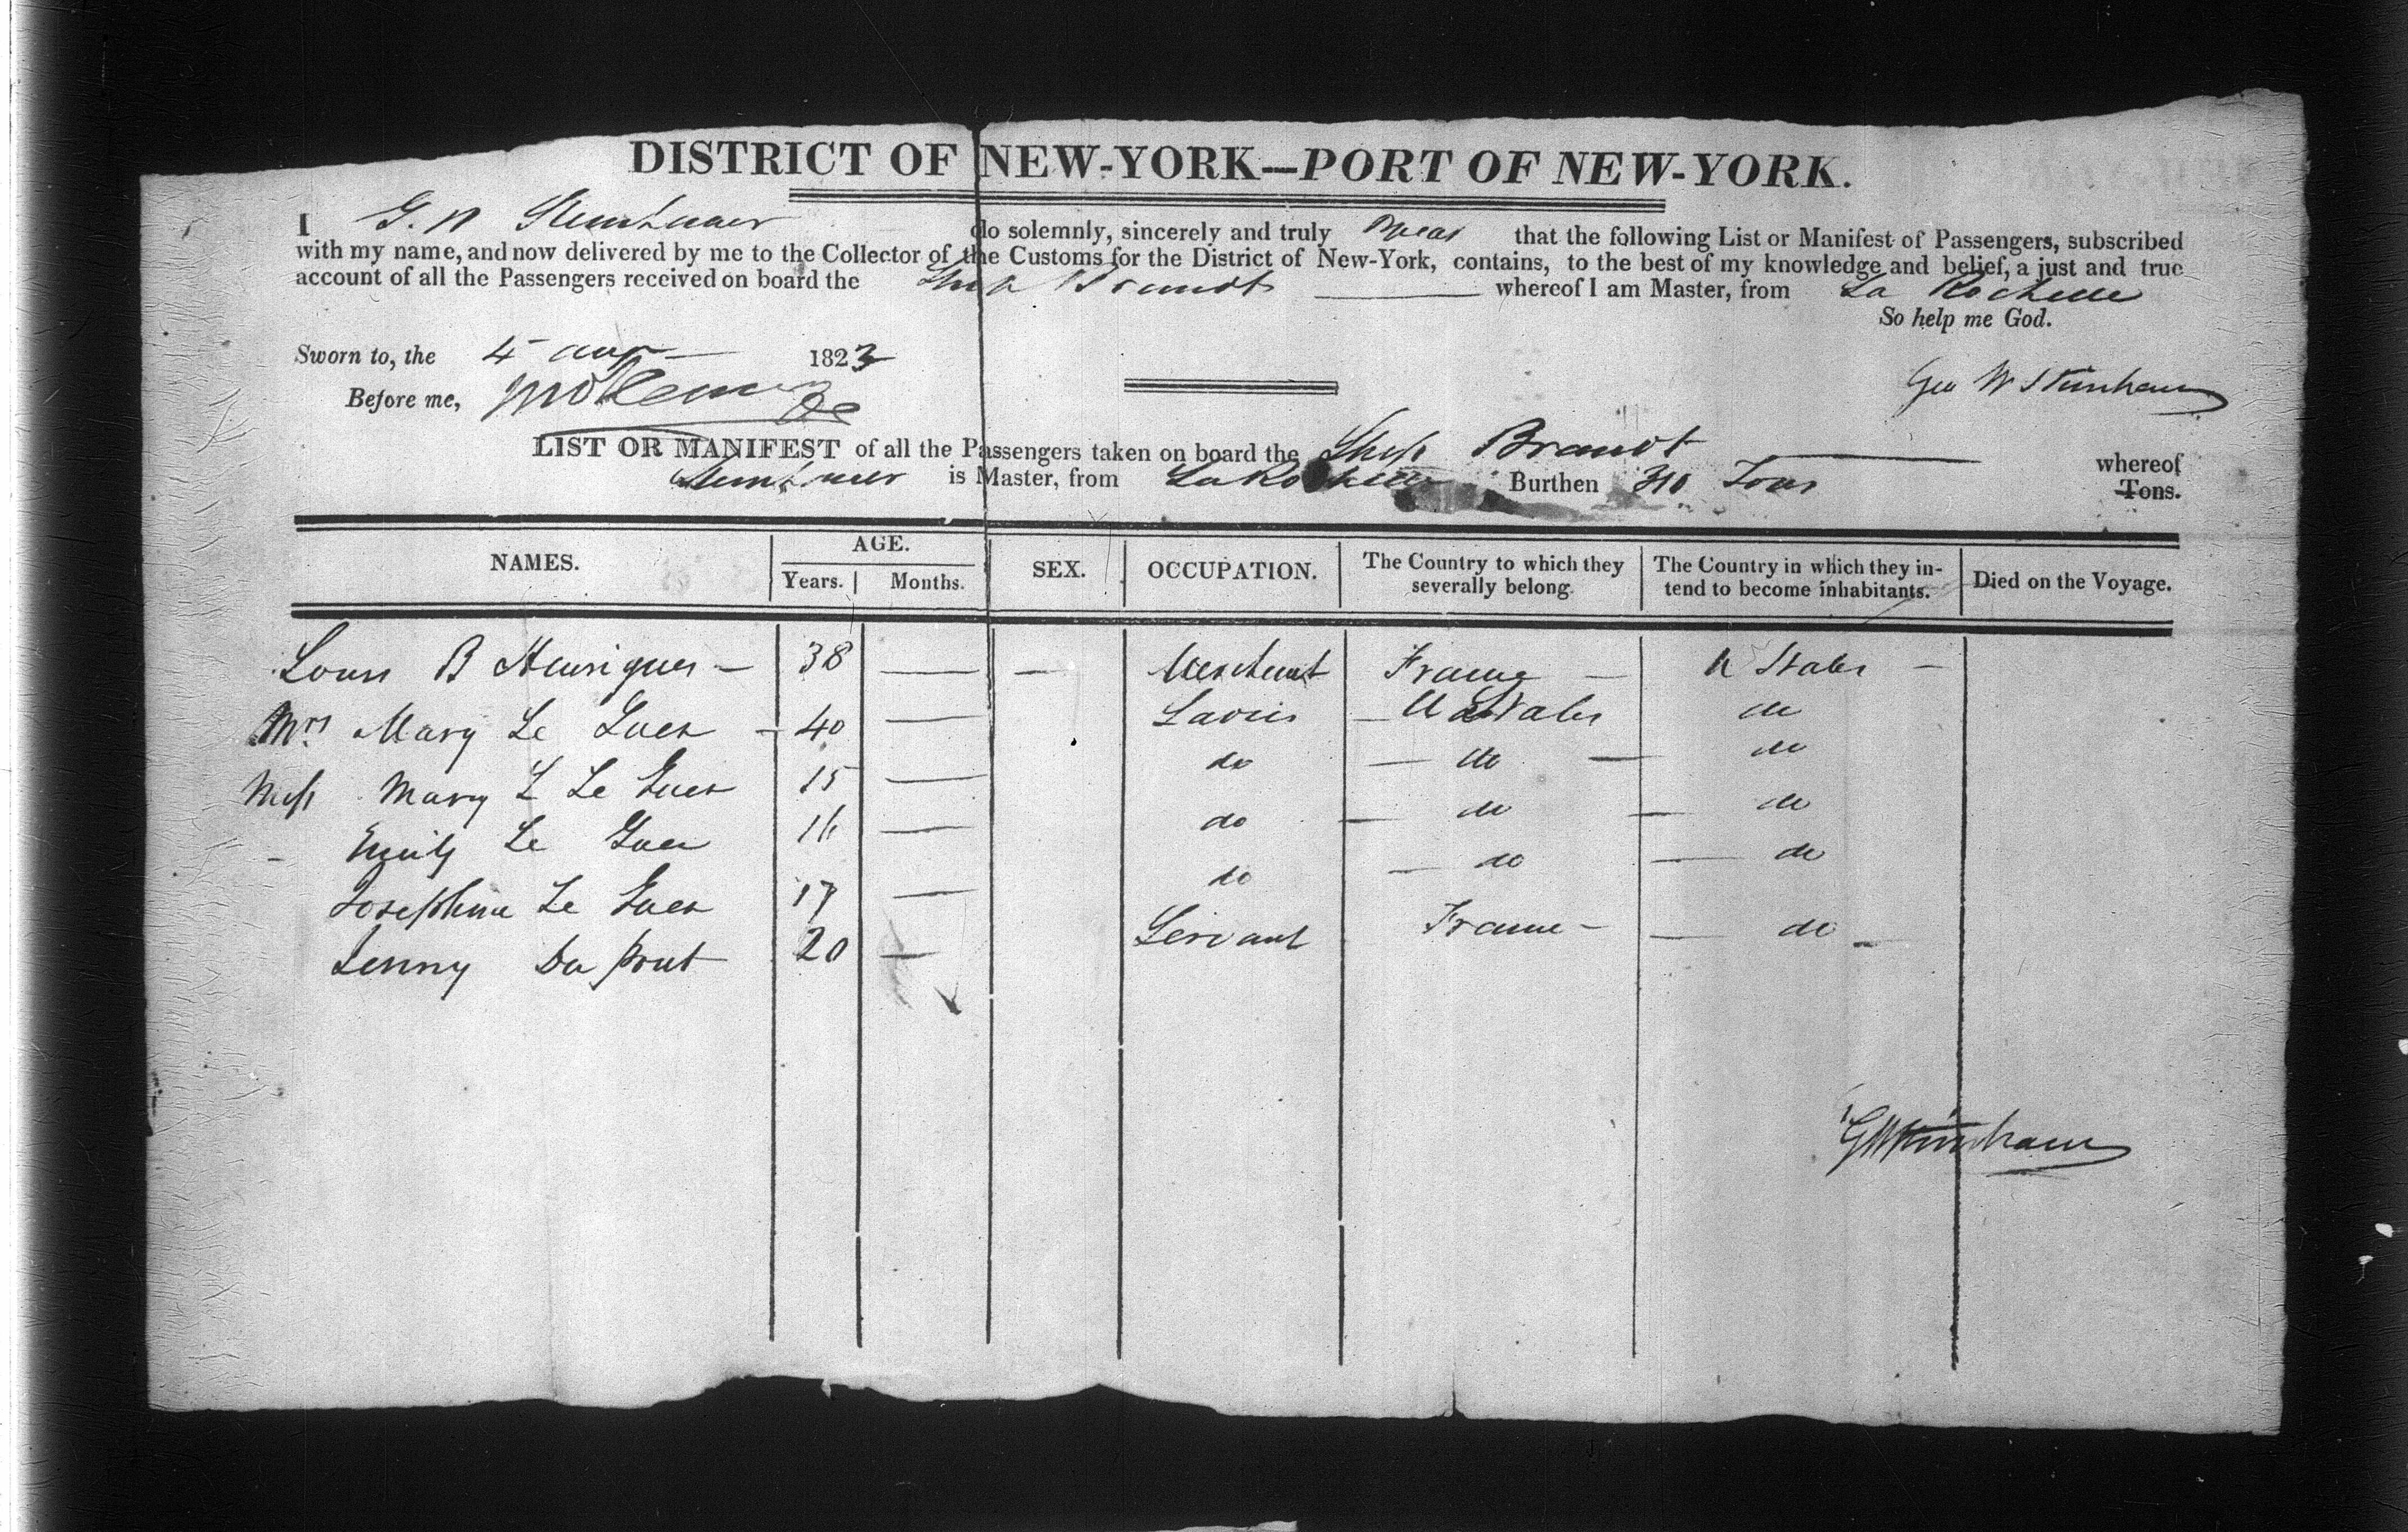 DISTRICT OF NEW-YORK—PORT OF NEW-YORK.
I G. W do solemnly, sincerely and truly that the following List or Manifest of Passengers, subscribed
with my name, and now delivered by me to the Collector of the Customs for the District of New-York, contains, to the best of my knowledge and belief, a just and true
account of all the Passengers received on board the Ship Brandt whereof I am Master, from La Rochelle
So help me God.
Sworn to, the 4 aug 1823
Geo W Steinhauer
Before me,
LIST OR MANIFEST of all the Passengers taken on board the Ship Brandt whereof
Steinhauer is Master, from La Rochelle Burthen 310 Tons Tons.
NAMES. AGE. Years. Months. SEX. OCCUPATION. The Country to which they severally belong. The Country in which they intend to become inhabitants. Died on the Voyage.
Louis B Henriques — 38 — — Merchant France — U States —
Mrs Mary Le Guen — 40 — Ladies — U States do
Miss Mary L Le Guen 15 — do — do — do
- Emily Le Guen 16 — do — do — do
Josephine Le Guen 17 — do — do — do
Jenny Du Pont 20 — Servant France — — do —
GW Steinhauer